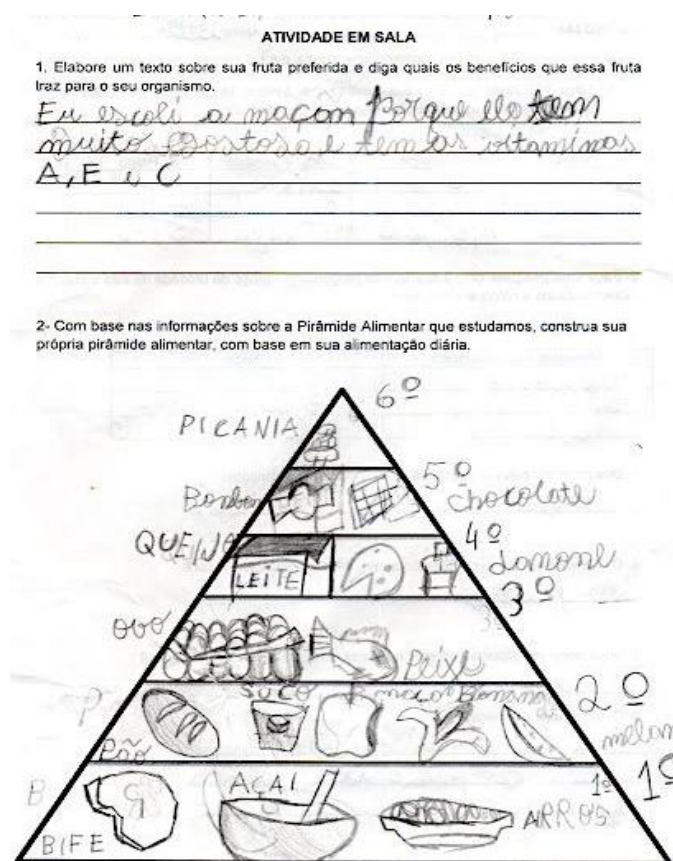 ATIVIDADE EM SALA
1. Elabore um texto sobre sua fruta preferida e diga quais os benefícios que essa fruta
traz para o seu organismo.
Eu escoli a maçom porque ela tem
muito gostosa e tem as vitaminas
A, E e C
2- Com base nas informações sobre a Pirâmide Alimentar que estudamos, construa sua
própria pirâmide alimentar, com base em sua alimentação diária.
6º
PICANIA
5º
Bonbon chocolate
4º
QUEIJA LEITE danone
3º
ovo Peixe
SUCO maçã Banana 2º
Pão melan
1º 1º
B AÇAI ARROS
BIFE